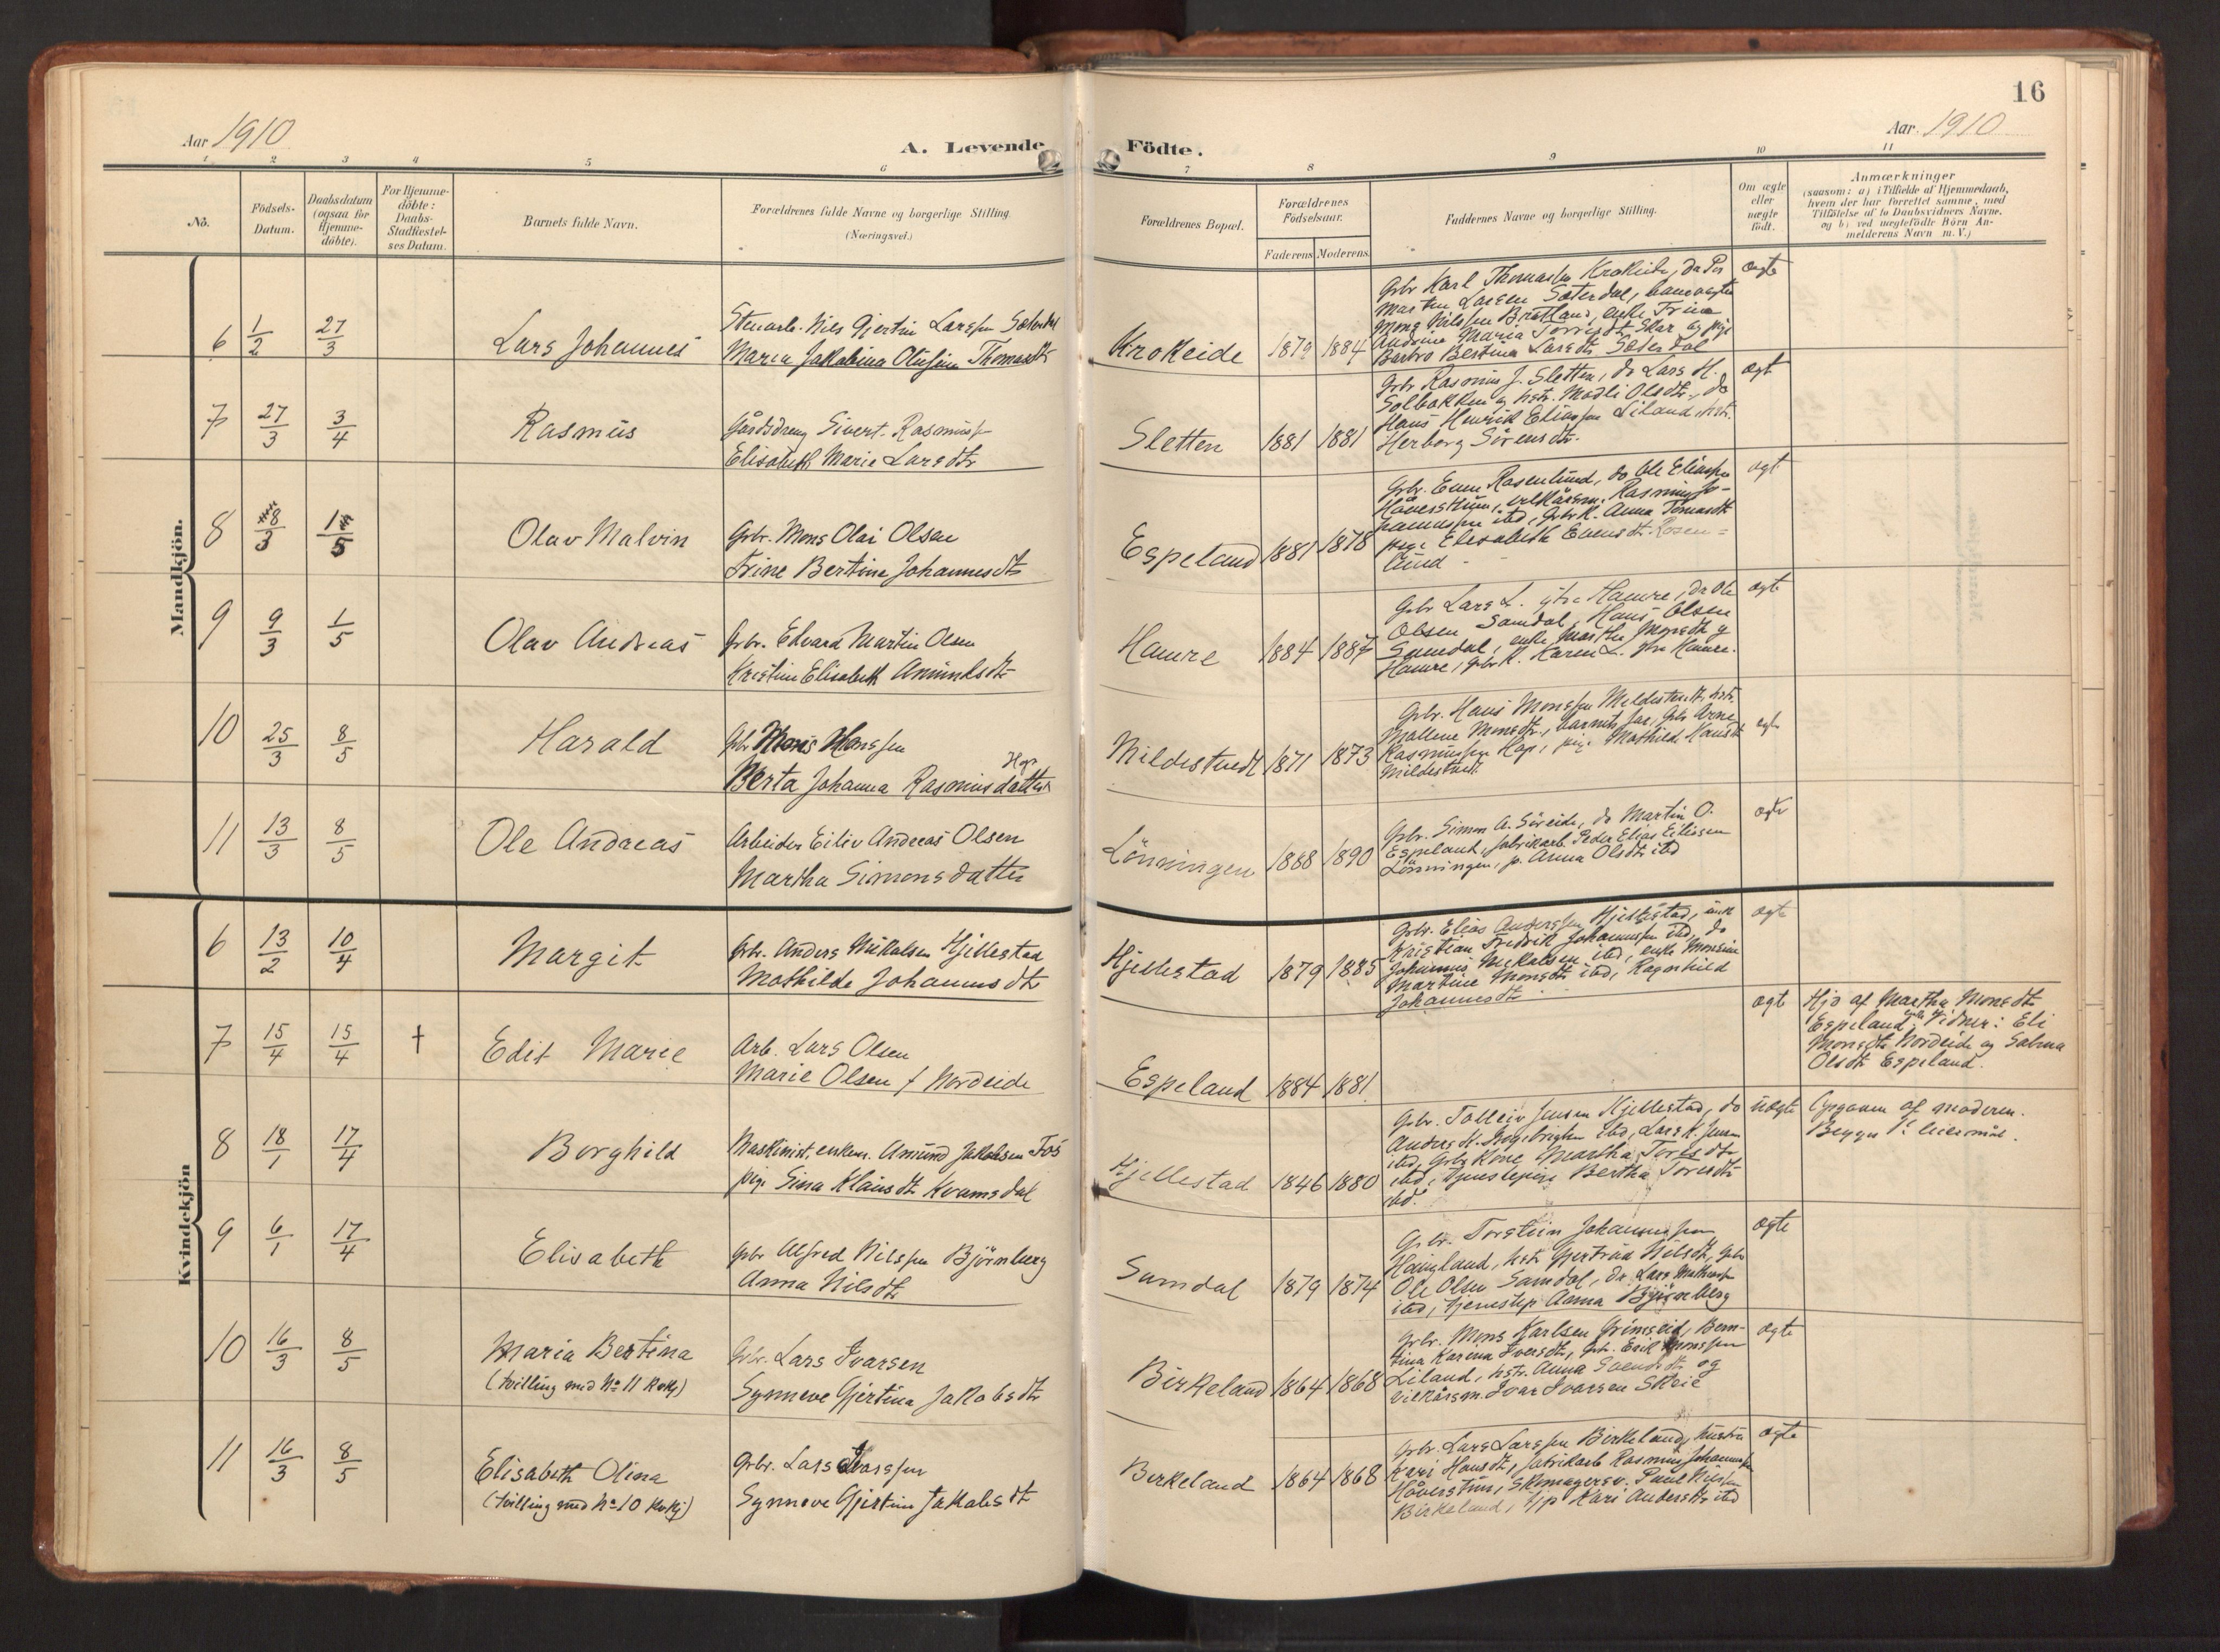 16
Aar 1910
A. Levende Födte.
Aar 1910
1 2 3 4 5 6 7 8 9 10 11
No.
Födsels-
Datum.
Daabsdatum
(ogsaa for
Hjemme-
döbte).
For Hjemme-
döbte:
Daabs-
Stadfæstel-
ses Datum.
Barnets fulde Navn.
Forældrenes fulde Navne og borgerlige Stilling.
(Næringsvei.)
Forældrenes Bopæl.
Forældrenes
Födselsaar.
Faderens Moderens
Faddernes Navne og borgerlige Stilling.
Om ægte
eller
uægte
födt.
Anmærkninger
(saasom: a) i Tilfælde af Hjemmedaab,
hvem der har forrettet samme, med
Tilföielse af to Daabsvidners Navne,
og b) ved uægtefödte Börn An-
melderens Navn m. V.)
Mandkjön.
6 1/2 27/3
Lars Johannes
Stenarb. Nils Gjertin Larssen Sæterdal
Maria Jakobina Olufine Thomasdtr
Krokeide 1879 1884
Grbr Karl Thomassen Krokeide, do Per
Martin Larsen Sæterdal, banevogter
Mons Nilssen Bratland, enke Trine
Andrine Maria Skar og pige
Barbro Bertina Larsdtr Sæterdal
ægte
7 27/3 3/4
Rasmus
Gårdsdreng Sivert Rasmuss
Elisabeth Marie Larsdtr
Sletten 1881 1881
Grbr Rasmus J. Sletten, do Lars H.
Solbakken og hstr. Madli Olsdtr, do
Hans Henrik Eliassen Liland, hstr.
Herborg Sörensdtr.
ægt
8 8/3 1/5
Olav Malvin
Grbr. Mons Olai Olsen
Trine Bertine Johannesdtr
Espeland 1881 1878
Grbr. Even Rosenlund, do Ole Eliassen
Håverstun, vilkårsm. Rasmus Jo-
hannessen ibd, Grbr.k. Anna Tomasdtr
pige Elisabeth Evensdtr Rosen=
lund
ægt
9 9/3 1/5
Olav Andreas
Grbr. Edvard Martin Olsen
Kristine Elisabeth Amundsdtr
Hamre 1884 1887
Grbr Lars L. ytre Hamre, do Ole
Olsen Samdal, Hans Olsen
Samdal, enke Marthe Monsdtr y
Hamre, grbr k. Karen L. ytre Hamre.
ægte
10 25/3 8/5
Harald
Grbr Mons Monssen
Hop
Berta Johanna Rasmusdatter
Mildestvedt 1871 1873
Grbr. Hans Monssen Mildestvedt, hstr.
Mallene Monsdtr, barnets far, Grbr Arne
Rasmussen Hop, pige Mathilde Hansdtr
Mildestvedt.
ægte
11 13/3 8/5
Ole Andreas
Arbeider Eiliv Andreas Olsen
Martha Simonsdatter
Lönningen 1888 1890
Grbr. Simon A. Söreide, do Martin O.
Espeland, fabrikarb. Peder Elias Eilissen
Lönningen, p. Anna Olsdtr ibd
ægte
Kvindekjön
6 13/2 10/4
Margit
Grbr. Anders Mikalsen Hjellestad
Mathilde Johannesdtr
Hjellestad 1879 1885
Grbr. Elias Anderssen Hjellestad, unk
Kristian Fredrik Johannessen ibd, do
Johannes Mikalsen ibd, enke Monsine
Martine Monsdtr ibd, Ragnhild
Johannesdtr
ægte
7 15/4 15/4 †
Edit Marie
Arb. Lars Olsen
Marie Olsen f Nordeide
Espeland 1884 1881
ægt
Hjd af Martha Monsdtr
Espeland, Vidner: Eli
Monsdtr Nordeide og Salma
Olsdtr Espeland.
8 18/1 17/4
Borghild
Maskinist, enkem. Amund Jakobsen Fos
pige Sina Klausdtr Kvamsdal
Hjellestad 1846 1880
Grbr. Tolleiv Jensen Hjellestad, do
Anders N. Ingebrigtsen ibd, Lars K. Jensen
ibd, Grbr Kone Martha Toresdtr
ibd, tjenestepige Bertha Toresdtr
ibd.
uægte
Opgaven af moderen.
Begges 1ste leiermål.
9 6/1 17/4
Elisabeth
Grbr Alfred Nilssen Björnberg
Anna Nilsdtr
Samdal 1879 1874
Grbr. Torstein Johannessen
Haugland, hstr Gjertrud Nilsdtr, Grbr
Ole Olsen Samdal, do Lars Mathiassen
ibd, tjenestep Anna Björnberg
ægte
10 16/3 8/5
Maria Bertina
(tvilling med No 11 Kvkj)
Grbr. Lars Ivarsen
Synneve Gjertina Jakobsdtr
Birkeland 1864 1868
Grbr. Mons Karlsen Grimseid, Bern-
tina Karina Iversdtr, Grbr. Erik Monssen
Liland, hstr. Anna Svendsdtr og
vilkårsm. Ivar Ivarsen Skeie
ægte
11 16/3 8/5
Elisabeth Olina
(tvilling med No 10 Kvkj)
Grbr. Lars Ivarssen
Synneve Gjertine Jakobsdtr
Birkeland 1864 1868
Grbr. Lars Larssen Birkeland, hustru
Kari Hansdtr, fabrikarb Rasmus Johannessen
Håverstun, Skomagersv. Paul Nilssen
Birkeland, tjp Kari Andersdtr ibd
ægte